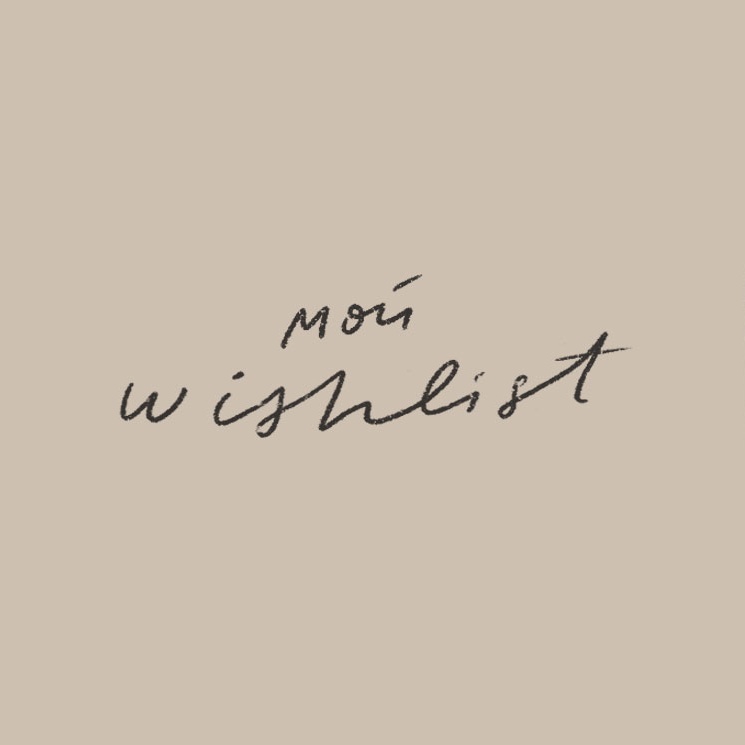 мой
wishlist